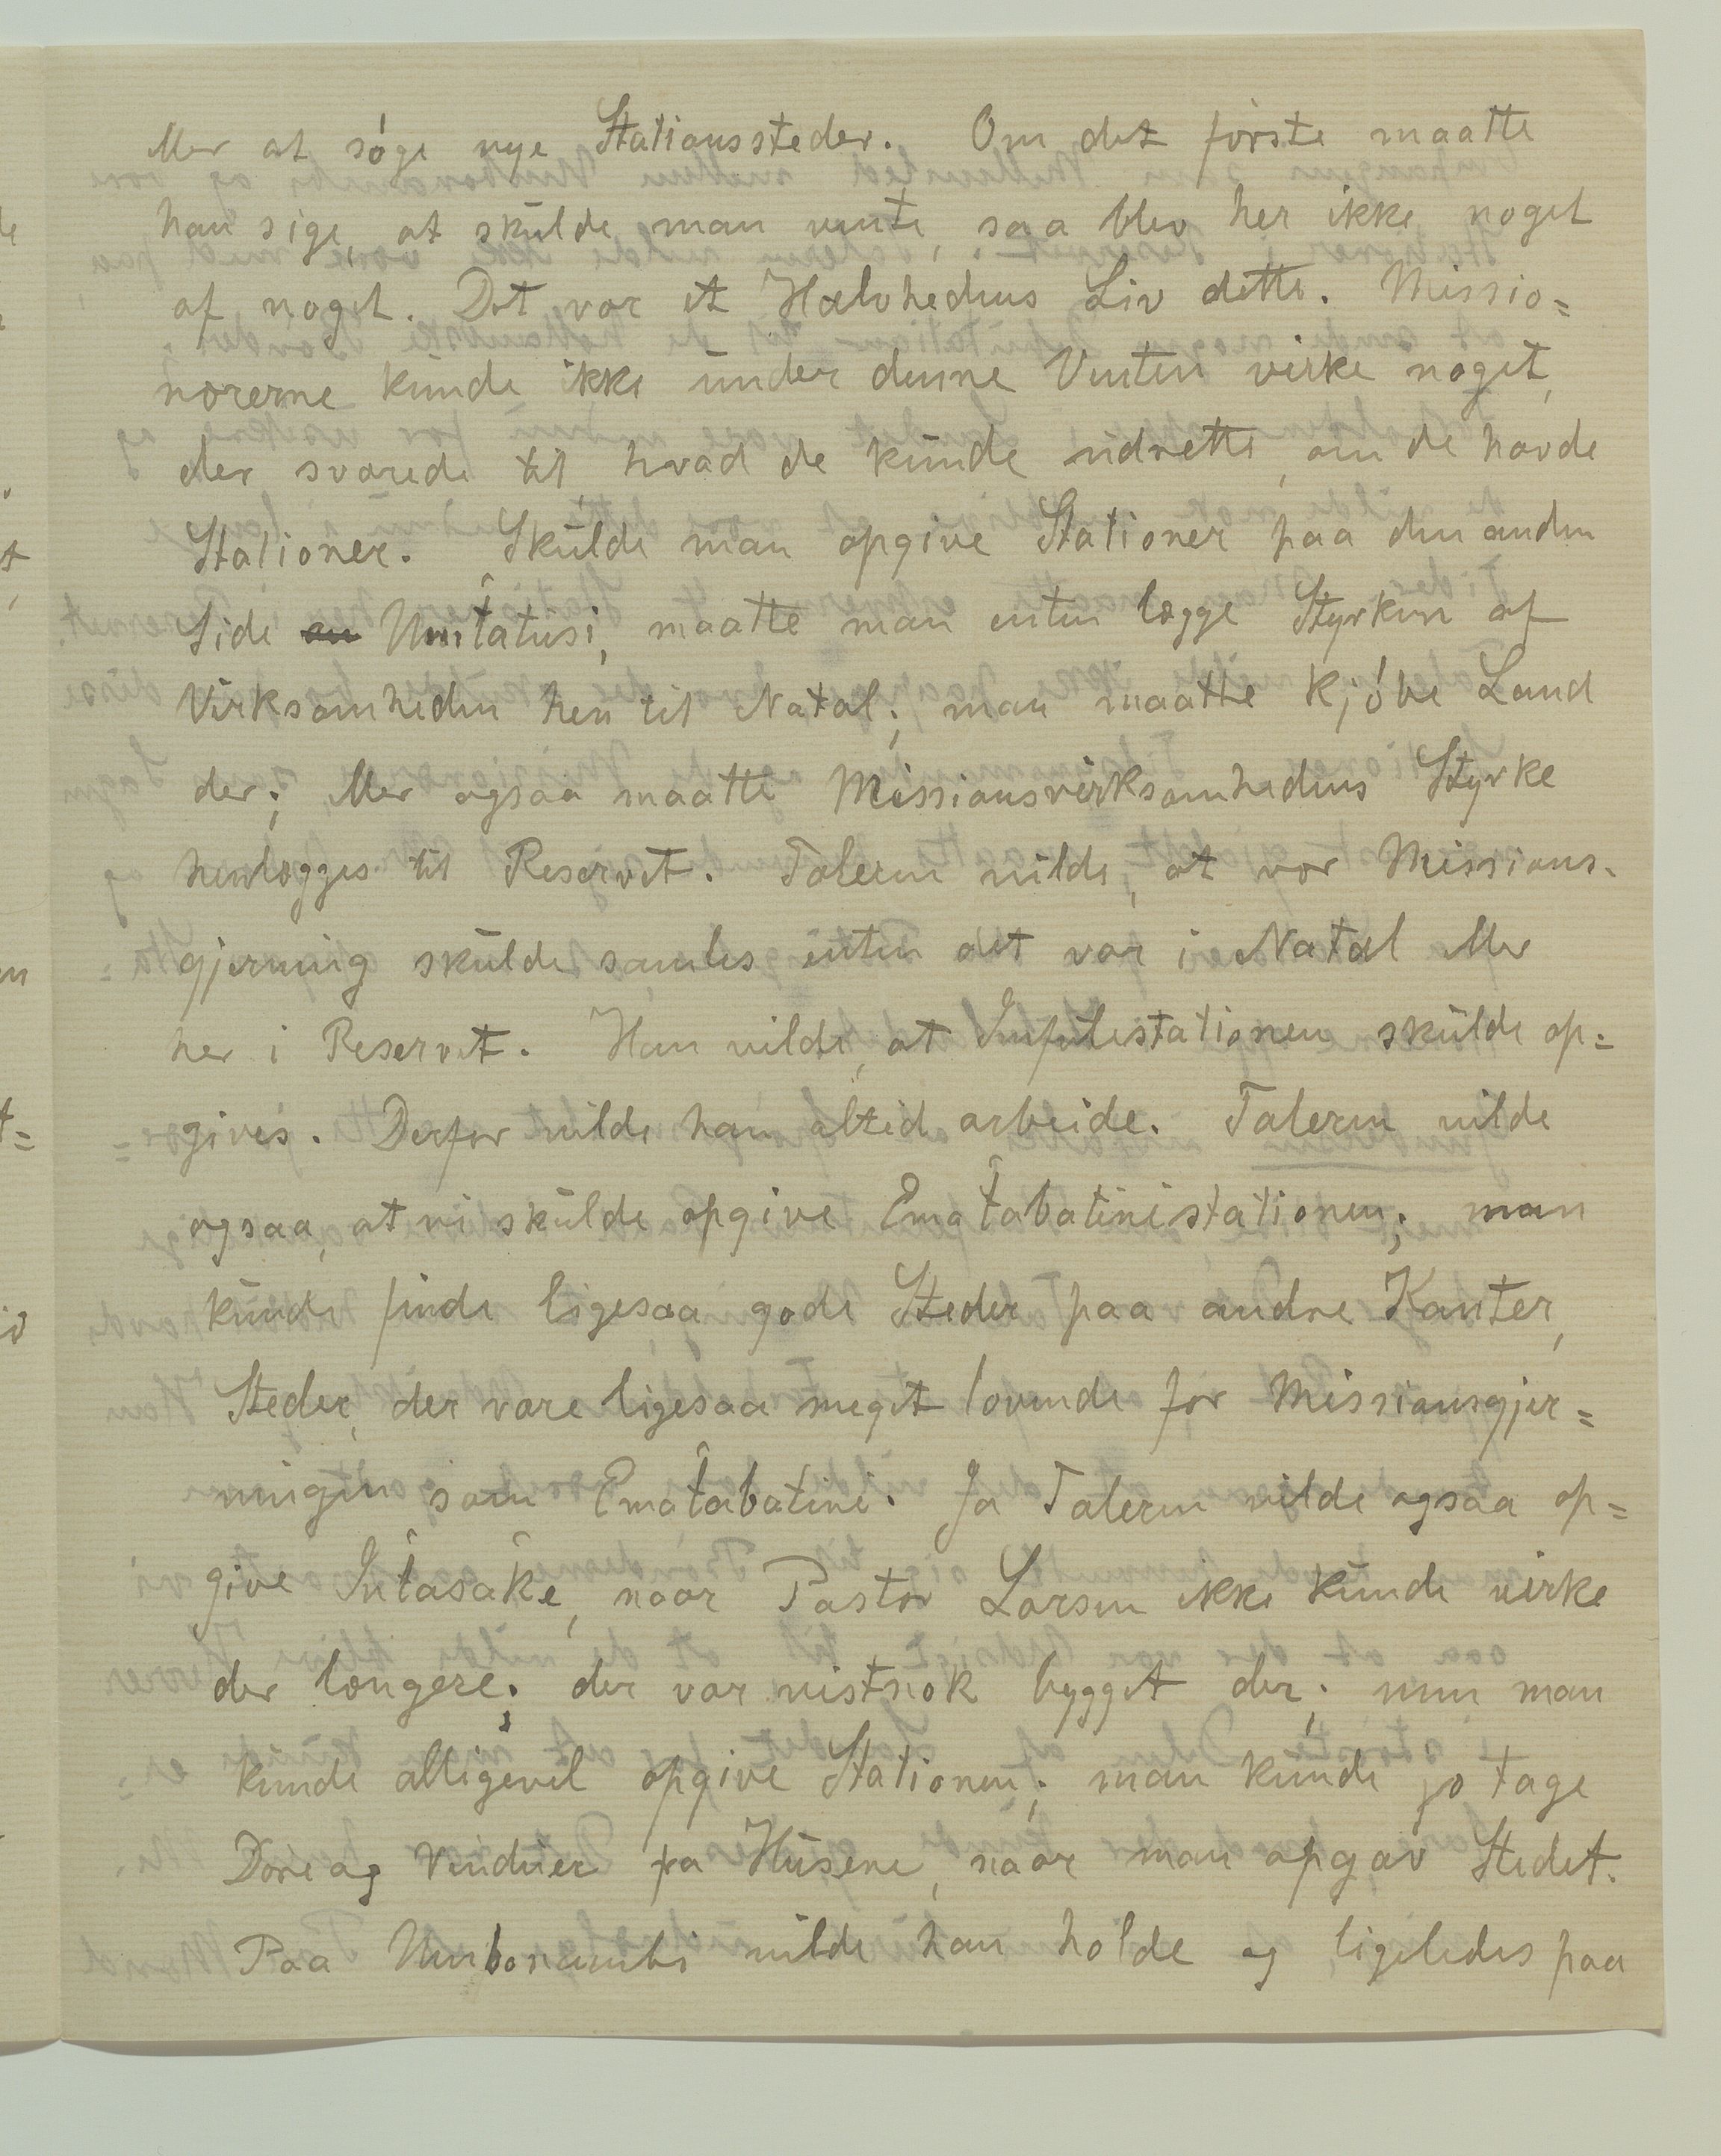 eller at søge nye Stationssteder. Om det første maatte
han sige, at skulde man vente, saa blev her ikke noget
af noget. Det var et Halvhedens Liv dette. Missio=
nærerne kunde ikke under denne Venten virke noget,
der svarede til, hvad de kunde udrette, om de havde
Stationer. Skulde man opgive Stationer paa den anden
Side Umĥlatusi, maatte man enten lægge Styrken af
Virksomheden hen til Natal; man maatte kjøbe Land
der; eller ogsaa maatte Missionsvirksomhedens Styrke
henlægges til Reservet. Taleren vilde, at vor Missions-
gjerning skulde samles enten det var i Natal eller
her i Reservet. Han vilde, at Imfulestationen skulde op=
gives. Derfor vilde han altid arbeide. Taleren vilde
ogsaa, at vi skulde opgive Emaĥlabatinistationen; man
kunde finde ligesaa gode Steder paa andre Kanter,
Steder, der vare ligesaa meget lovende for Missionsgjer=
ningen som Emaĥlabatini. Ja Taleren vilde ogsaa op=
give Inĥlasaĥe, naar Pastor Larsen ikke kunde virke
der længere; der var vistnok bygget der; men man
kunde alligevel opgive Stationen; man kunde jo tage
Døre og Vinduer fra Husene, naar man opgav Stedet.
Paa Umbonambi vilde han holde og ligeledes paa